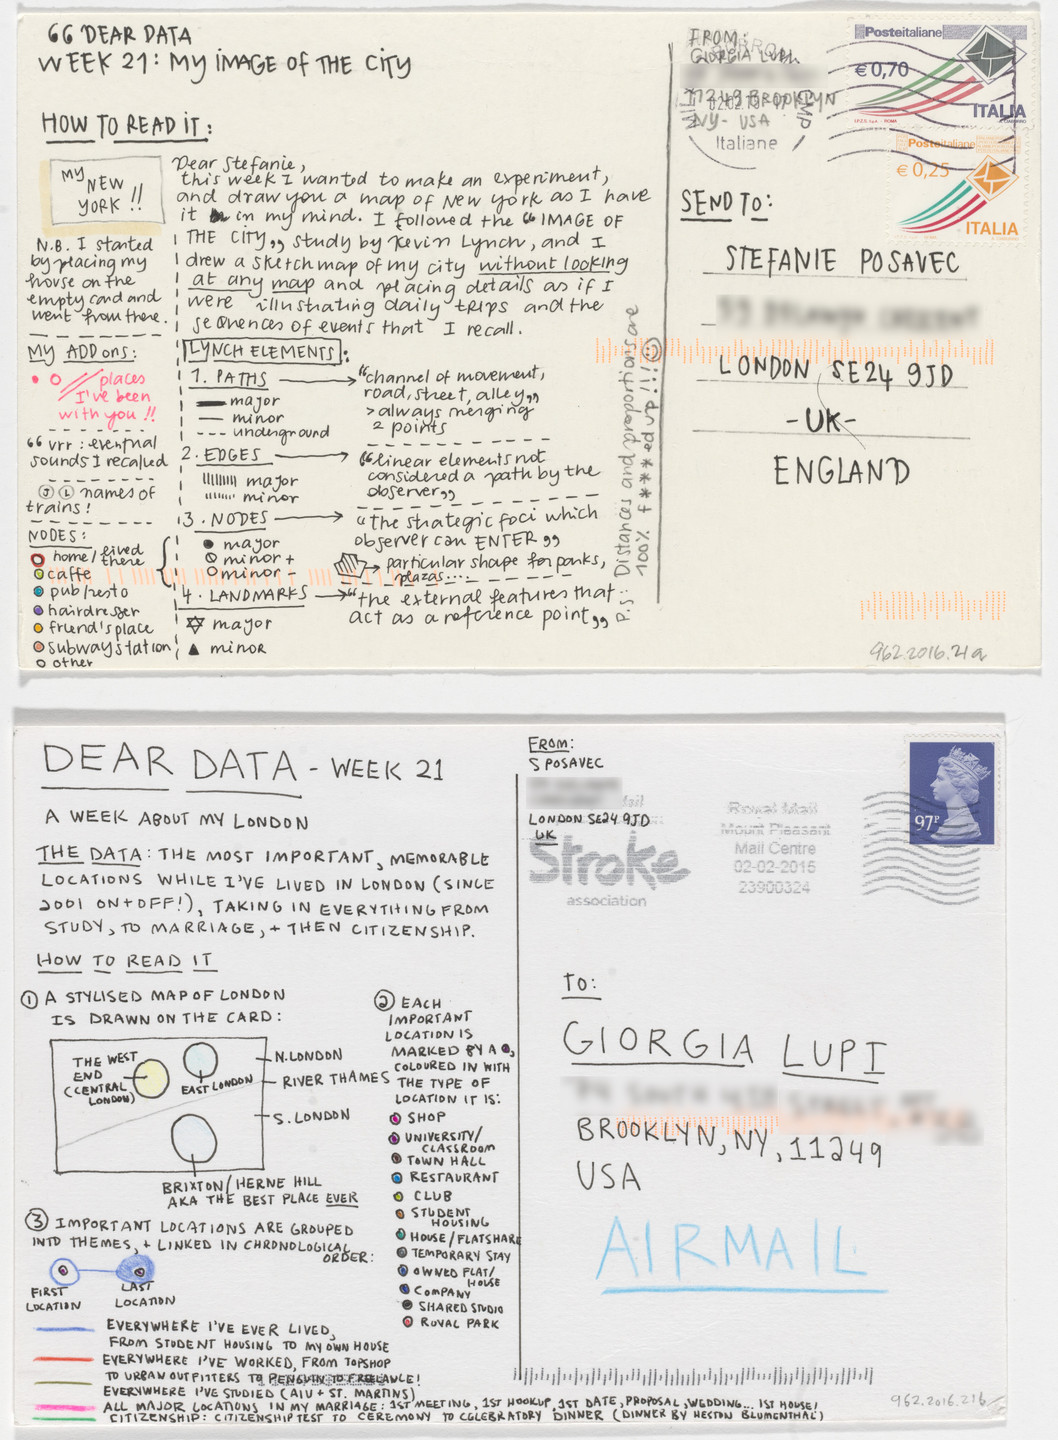 “ DEAR DATA
WEEK 21: MY IMAGE OF THE CITY
HOW TO READ IT:
MY NEW YORK !!
N.B. I started
by placing my
house on the
empty card and
went from there.
MY ADD ons:
places
I've been
with you !!
“ vrr : eventual
sounds I recalled
J L names of
trains!
NODES:
home/lived there
caffe
pub/resto
hairdresser
friend's place
subway station
other
Dear Stefanie,
this week I wanted to make an experiment,
and draw you a map of New York as I have
it in my mind. I followed the “ IMAGE OF
THE CITY„ study by Kevin Lynch, and I
drew a sketch map of my city without looking
at any map and placing details as if I
were illustrating daily trips and the
sequences of events that I recall.
LYNCH ELEMENTS:
1. PATHS
major
minor
underground
“channel of movement,
road, street, alley„
> always merging
2 points
2. EDGES
major
minor
“linear elements not
considered a path by the
observer„
3. NODES
major
minor +
minor -
“the strategic foci which
observer can ENTER „
particular shape for parks,
plazas....
4. LANDMARKS
major
minor
“the external features that
act as a reference point„
P.S: Distances and proportions are
100% f****ed up!!!!
FROM:
GIORGIA LUPI
11249 BROOKLYN
NY- USA
CMP
Italiane
Posteitaliane
€ 0,70
ITALIA
Posteitaliane
€ 0,25
ITALIA
SEND TO:
STEFANIE POSAVEC
LONDON, SE24 9JD
-UK-
ENGLAND
962.2016.21a
DEAR DATA - WEEK 21
A WEEK ABOUT MY LONDON
THE DATA: THE MOST IMPORTANT, MEMORABLE
LOCATIONS WHILE I'VE LIVED IN LONDON (SINCE
2001 ON + OFF!), TAKING IN EVERYTHING FROM
STUDY, TO MARRIAGE, + THEN CITIZENSHIP.
HOW TO READ IT
1 A STYLISED MAP OF LONDON
IS DRAWN ON THE CARD:
THE WEST
END
(CENTRAL
LONDON)
EAST LONDON
N. LONDON
RIVER THAMES
S. LONDON
BRIXTON/HERNE HILL
AKA THE BEST PLACE EVER
2 EACH
IMPORTANT
LOCATION IS
MARKED BY A ,
COLOURED IN WITH
THE TYPE OF
LOCATION IT IS:
SHOP
UNIVERSITY/
CLASSROOM
TOWN HALL
RESTAURANT
CLUB
STUDENT
HOUSING
HOUSE/FLATSHARE
TEMPORARY STAY
OWNED FLAT/
HOUSE
COMPANY
SHARED STUDIO
ROYAL PARK
3 IMPORTANT LOCATIONS ARE GROUPED
INTO THEMES, + LINKED IN CHRONOLOGICAL
ORDER:
FIRST
LOCATION
LAST
LOCATION
EVERYWHERE I'VE EVER LIVED,
FROM STUDENT HOUSING TO MY OWN HOUSE
EVERYWHERE I'VE WORKED, FROM TOPSHOP
TO URBAN OUTFITTERS TO PENGUIN TO FREELANCE!
EVERYWHERE I'VE STUDIED (AIU + ST. MARTINS)
ALL MAJOR LOCATIONS IN MY MARRIAGE: 1ST MEETING, 1ST HOOKUP, 1ST DATE, PROPOSAL, WEDDING... 1ST HOUSE!
CITIZENSHIP: CITIZENSHIP TEST TO CEREMONY TO CELEBRATORY DINNER (DINNER BY HESTON BLUMENTHAL)
FROM:
S POSAVEC
LONDON SE24 9JD
UK
Stroke
association
Royal Mail
Mount Pleasant
Mail Centre
02-02-2015
23900324
97P
TO:
GIORGIA LUPI
BROOKLYN, NY, 11249
USA
AIRMAIL
962.2016.21b